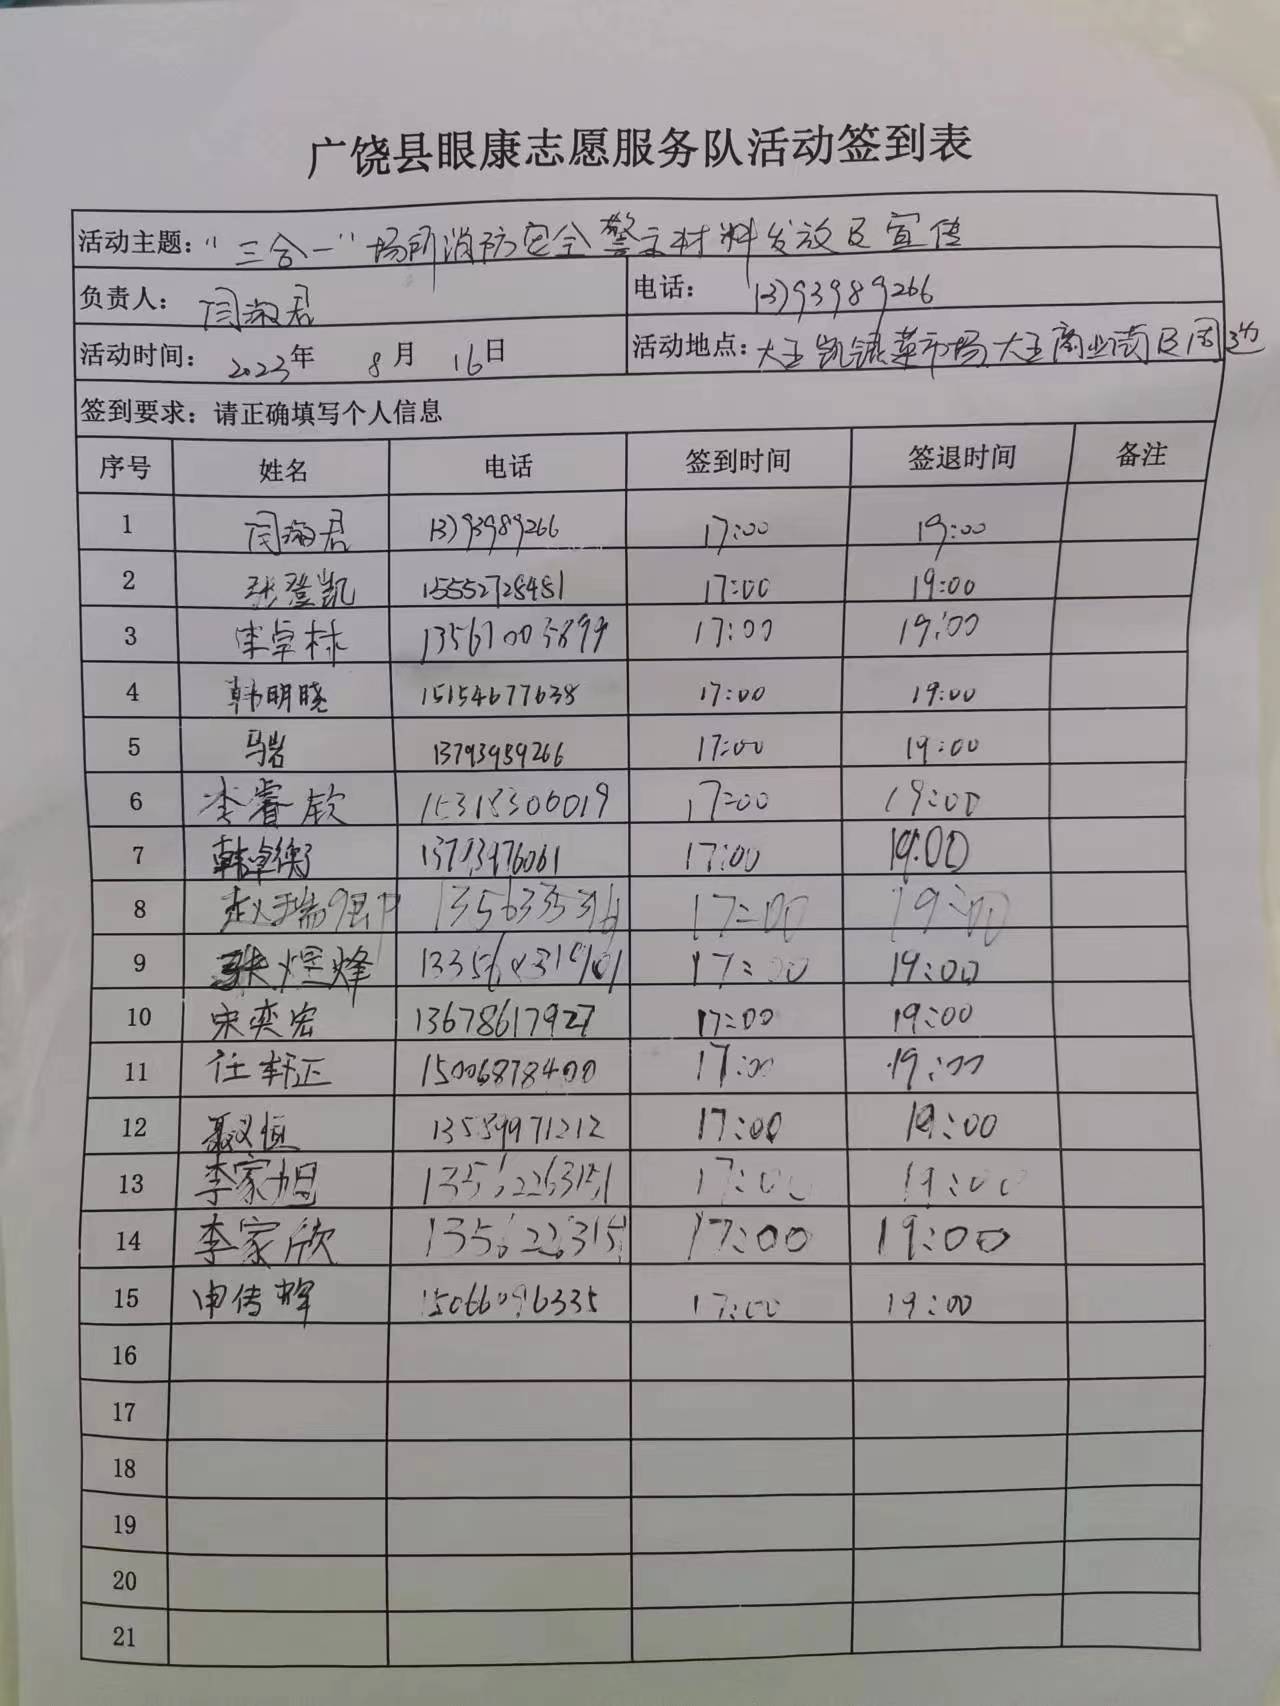 广饶县眼康志愿服务队活动签到表
活动主题：“三合一”场所消防安全警示材料发放及宣传
负责人：闫淑君 电话：13793989266
活动时间：2023年 8月 16日 活动地点：大王凯银菜市场,大王商业街及周边
签到要求：请正确填写个人信息
序号 姓名 电话 签到时间 签退时间 备注
1 闫淑君 13793989266 17:00 19:00
2 张登凯 15552728481 17:00 19:00
3 宋卓林 17:00 19:00
4 韩明晓 15154677638 17:00 19:00
5 马岩 13793989266 17:00 19:00
6 李睿钦 15318306019 17:00 19:00
7 韩卓衡 13793976061 17:00 19:00
8 赵瑞 17:00 19:00
9 张煜烽 17:00 19:00
10 宋奕宏 13678617927 17:00 19:00
11 任轩正 15006878400 17:00 19:00
12 聂义恒 13589971212 17:00 19:00
13 李家旭 13562263151 17:00 19:00
14 李家欣 1356226315 17:00 19:00
15 申传辉 15066096335 17:00 19:00
16
17
18
19
20
21